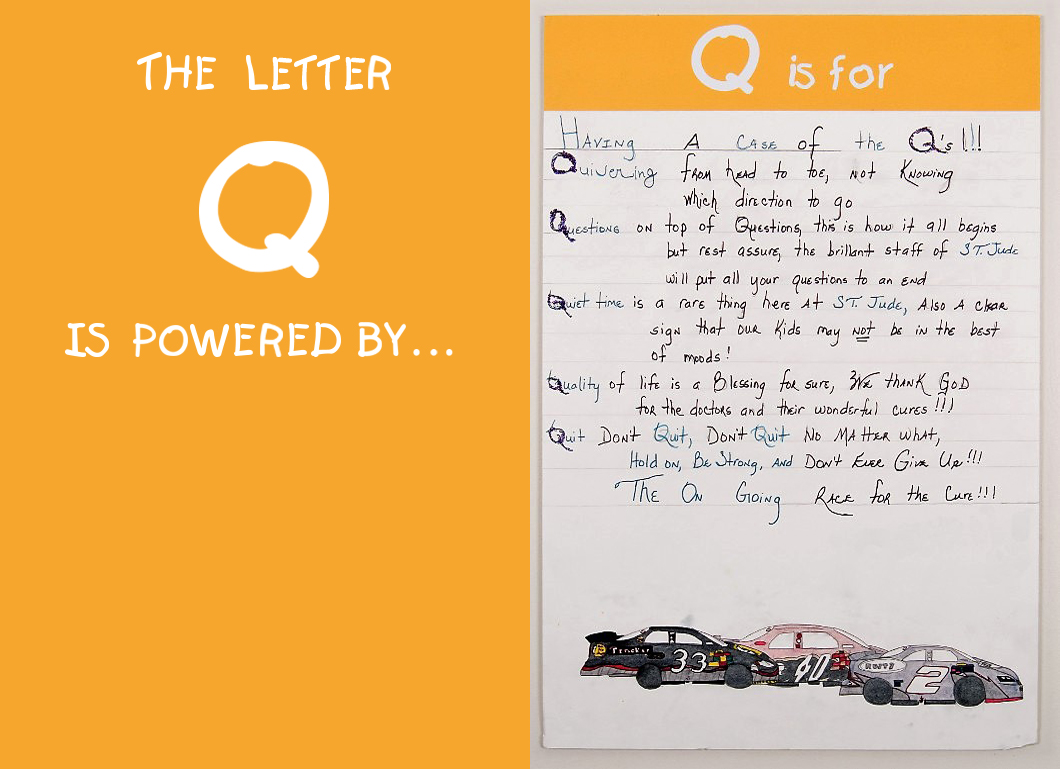 THE LETTER
Q
IS POWERED BY...
Q is for
HAVING A CASE of the Q's !!!
Quivering from head to toe, not Knowing
which direction to go
Questions on top of Questions, this is how it all begins
but rest assure, the brillant staff of ST. Jude
will put all your questions to an end
Quiet time is a rare thing here At ST. Jude, Also A clear
sign that our Kids may not be in the best
of moods!
Quality of life is a Blessing for sure, We thank God
for the doctors and their wonderful cures!!!
Quit Don't Quit, Don't Quit No Matter What,
Hold on, Be Strong, And Don't Ever Give Up!!!
"The On Going Race for the Cure!!!
33
40
2